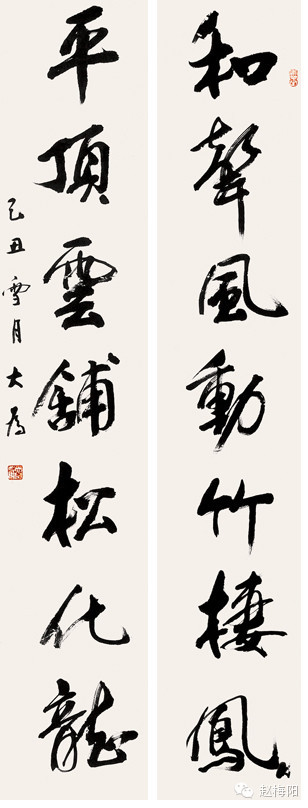 和聲風動竹棲鳳
平頂雲舖松化龍
己丑雪月大為
赵梅阳